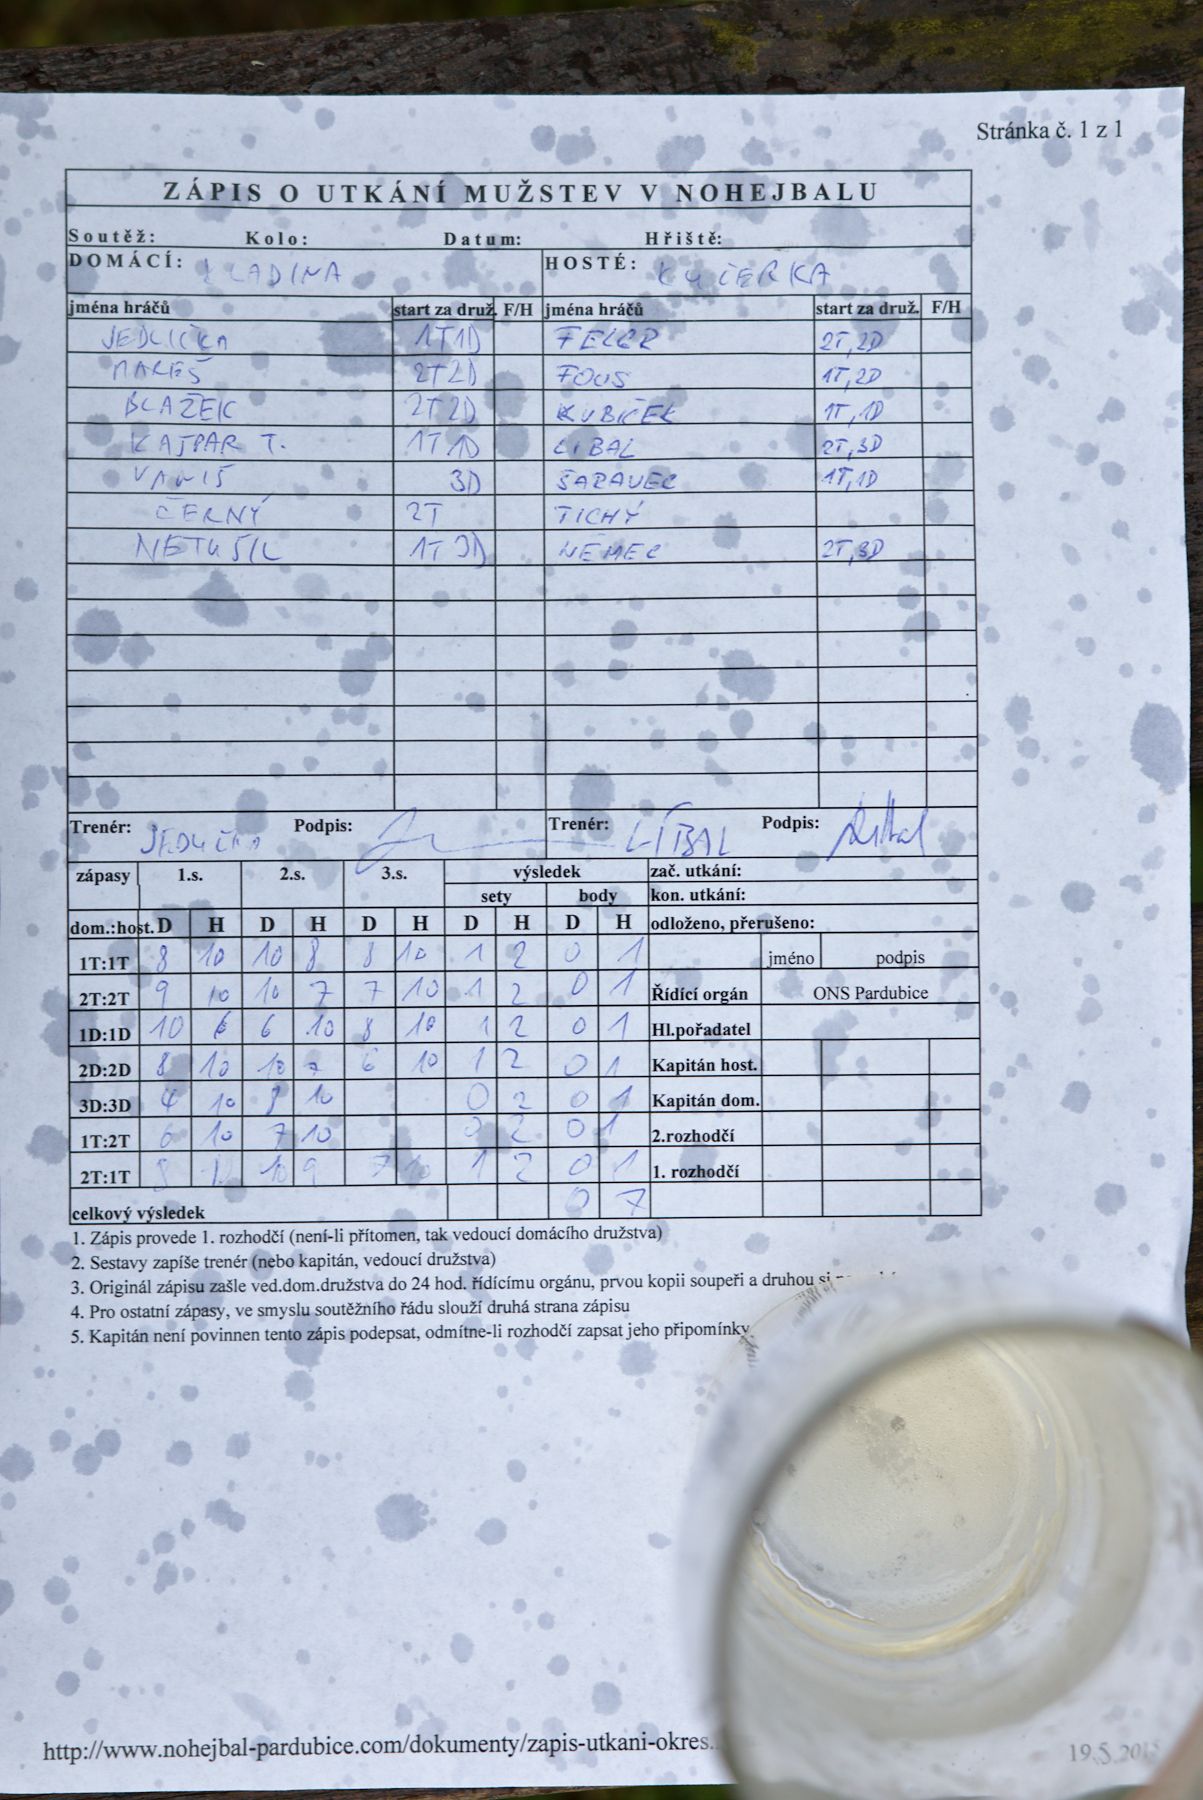 Stránka č. 1 z 1
ZÁPIS O UTKÁNÍ MUŽSTEV V NOHEJBALU
Soutěž: Kolo: Datum: Hřiště:
DOMÁCÍ: KLADINA HOSTÉ: KUČERKA
jména hráčů start za druž. F/H jména hráčů start za druž. F/H
JEDLIČKA 1T1D FELCR 2T,2D
MAREŠ 2T2D FOUS 1T,2D
BLAŽEK 2T2D KUBIČEK 1T,1D
KAŠPAR T. 1T1D LIBAL 2T,3D
VANIŠ 3D ŠARAVEC 1T,1D
ČERNÝ 2T TICHÝ
NETUŠIL 1T3D NĚMEC 2T,3D
Trenér: JEDLIČKA Podpis: Trenér: LÍBAL Podpis:
zápasy 1.s. 2.s. 3.s. výsledek zač. utkání:
sety body kon. utkání:
dom.:host. D H D H D H D H D H odloženo, přerušeno:
1T:1T 8 10 10 8 8 10 1 2 0 1 jméno podpis
2T:2T 9 10 10 7 7 10 1 2 0 1 Řídící orgán ONS Pardubice
1D:1D 10 6 6 10 8 10 1 2 0 1 Hl.pořadatel
2D:2D 8 10 10 7 6 10 1 2 0 1 Kapitán host.
3D:3D 4 10 8 10 0 2 0 1 Kapitán dom.
1T:2T 6 10 7 10 0 2 0 1 2.rozhodčí
2T:1T 8 10 10 9 7 10 1 2 0 1 1. rozhodčí
celkový výsledek 0 7
1. Zápis provede 1. rozhodčí (není-li přítomen, tak vedoucí domácího družstva)
2. Sestavy zapíše trenér (nebo kapitán, vedoucí družstva)
3. Originál zápisu zašle ved.dom.družstva do 24 hod. řídícímu orgánu, prvou kopii soupeři a druhou si
4. Pro ostatní zápasy, ve smyslu soutěžního řádu slouží druhá strana zápisu
5. Kapitán není povinnen tento zápis podepsat, odmítne-li rozhodčí zapsat jeho připomínky
http://www.nohejbal-pardubice.com/dokumenty/zapis-utkani-okres..
19.5.201